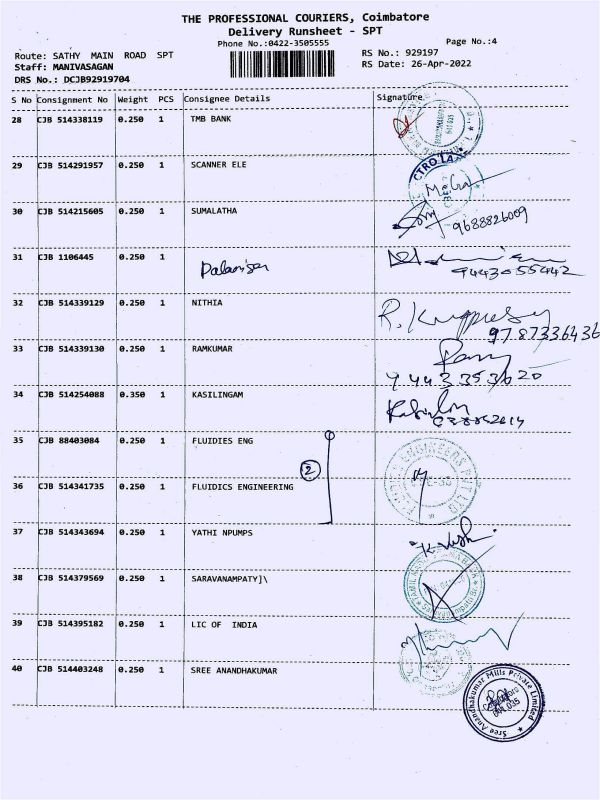 THE PROFESSIONAL COURIERS, Coimbatore
Delivery Runsheet - SPT
Phone No.:0422-3505555
Page No.:4
Route: SATHY MAIN ROAD SPT
RS No.: 929197
Staff: MANIVASAGAN
RS Date: 26-Apr-2022
DRS No.: DCJB92919704
S No Consignment No Weight PCS Consignee Details Signature
28 CJB 514338119 0.250 1 TMB BANK
29 CJB 514291957 0.250 1 SCANNER ELE
30 CJB 514215605 0.250 1 SUMALATHA
9688826009
31 CJB 1106445 0.250 1
9443055442
32 CJB 514339129 0.250 1 NITHIA
R.
9787336436
33 CJB 514339130 0.250 1 RAMKUMAR
9443353620
34 CJB 514254088 0.350 1 KASILINGAM
35 CJB 88403084 0.250 1 FLUIDIES ENG
2
36 CJB 514341735 0.250 1 FLUIDICS ENGINEERING
37 CJB 514343694 0.250 1 YATHI NPUMPS
38 CJB 514379569 0.250 1 SARAVANAMPATY]\
39 CJB 514395182 0.250 1 LIC OF INDIA
40 CJB 514403248 0.250 1 SREE ANANDHAKUMAR
Sree Anandhakumar Mills Private Limited